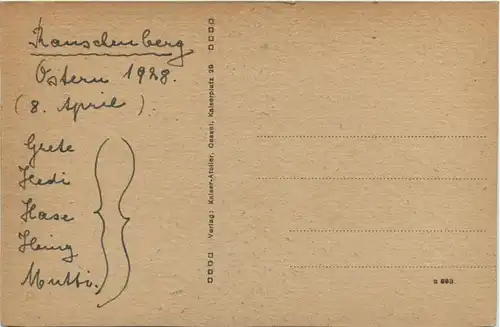 Rauschenberg
Ostern 1928.
(8. April)
Grete
Hedi
Hase
Heinz
Mutti.
Verlag: Kaiser-Atelier, Cassel, Kaiserplatz 29